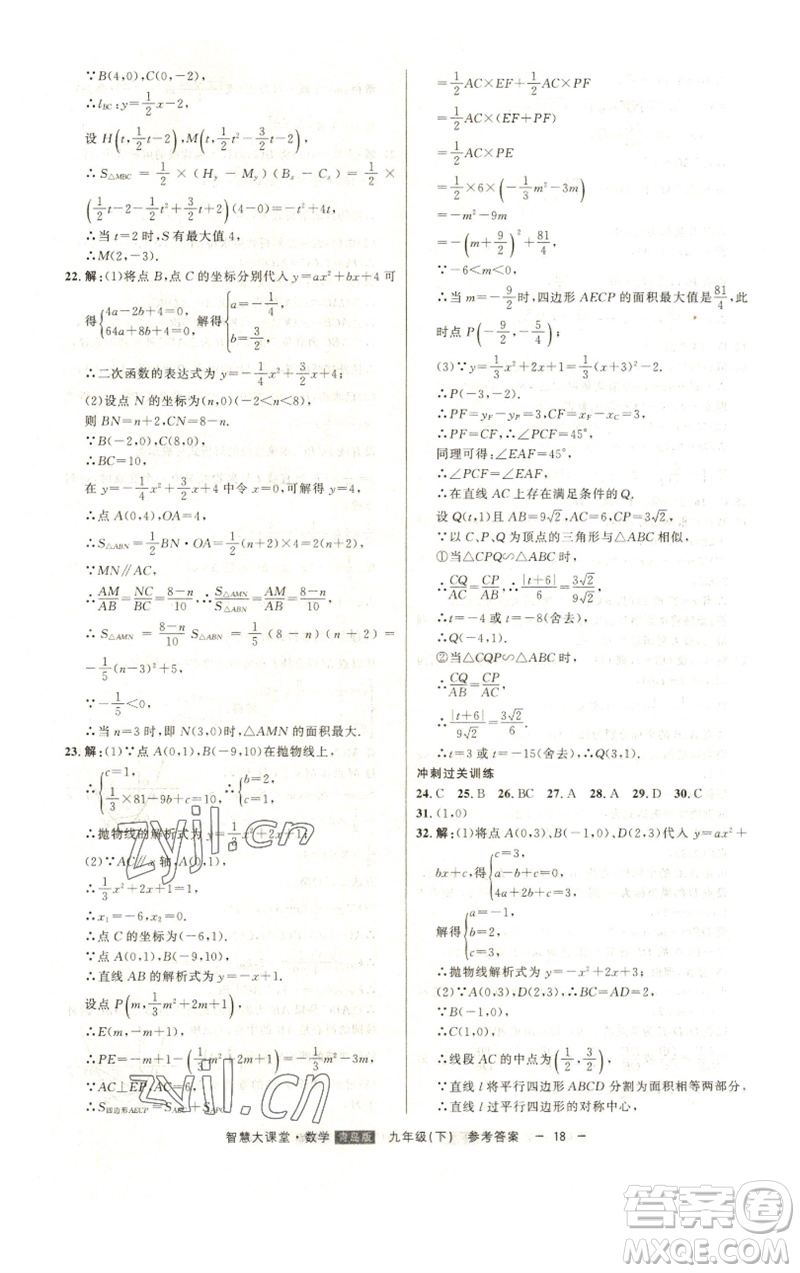 ∵B(4,0),C(0,-2),
∴l_BC:y=1/2x-2,
设 H(t,1/2t-2),M(t,1/2t²-3/2t-2),
∴S_△MBC = 1/2 × (H_y - M_y)(B_x - C_x) =
1/2 ×
(1/2t-2-1/2t²+3/2t+2)(4-0)=-t²+4t,
∴当 t=2 时,S 有最大值 4,
∴M(2,-3).
22.解:(1)将点 B,点 C 的坐标分别代入 y=ax²+bx+4 可
得{4a-2b+4=0, 64a+8b+4=0, 解得{a=-1/4, b=3/2,
∴二次函数的表达式为 y=-1/4x²+3/2x+4;
(2)设点 N 的坐标为(n,0)(-2<n<8),
则 BN=n+2,CN=8-n.
∵B(-2,0),C(8,0),
∴BC=10,
在 y=-1/4x²+3/2x+4 中令 x=0,可解得 y=4,
∴点 A(0,4),OA=4,
∴S_△ABN=1/2BN·OA=1/2(n+2)×4=2(n+2),
∵MN∥AC,
∴AM/AB=NC/BC=(8-n)/10.∴S_△AMN/S_△ABN=AM/AB=(8-n)/10,
∴S_△AMN = (8-n)/10 S_△ABN = 1/5(8-n)(n+2) =
-1/5(n-3)²+5,
∵-1/5<0,
∴当 n=3 时,即 N(3,0)时,△AMN 的面积最大.
23.解:(1)∵点 A(0,1),B(-9,10)在抛物线上,
∴{c=1, 1/3×81-9b+c=10, ∴{b=2, c=1,
∴抛物线的解析式为 y=1/3x²+2x+1;
(2)∵AC∥x 轴,A(0,1),
∴1/3x²+2x+1=1,
∴x₁=-6,x₂=0.
∴点 C 的坐标为(-6,1).
∵点 A(0,1),B(-9,10),
∴直线 AB 的解析式为 y=-x+1,
设点 P(m,1/3m²+2m+1),
∴E(m,-m+1),
∴PE=-m+1-(1/3m²+2m+1)=-1/3m²-3m,
∵AC⊥EP,AC=6,
∴S_四边形AECP=S_△AEC+S_△APC
=1/2AC×EF+1/2AC×PF
=1/2AC×(EF+PF)
=1/2AC×PE
=1/2×6×(-1/3m²-3m)
=-m²-9m
=-(m+9/2)²+81/4,
∵-6<m<0,
∴当 m=-9/2时,四边形 AECP 的面积最大值是81/4,此
时点 P(-9/2,-5/4);
(3)∵y=1/3x²+2x+1=1/3(x+3)²-2,
∴P(-3,-2).
∴PF=y_F-y_P=3,CF=x_F-x_C=3,
∴PF=CF,∴∠PCF=45°,
同理可得:∠EAF=45°,
∴∠PCF=∠EAF,
∴在直线 AC 上存在满足条件的 Q.
设 Q(t,1)且 AB=9√2,AC=6,CP=3√2,
∵以 C、P、Q 为顶点的三角形与△ABC 相似,
①当△CPQ∽△ABC 时,
∴CQ/AC=CP/AB,∴|t+6|/6=3√2/9√2,
∴t=-4 或 t=-8(舍去),
∴Q(-4,1).
②当△CQP∽△ABC 时,
∴CQ/AB=CP/AC,
∴|t+6|/9√2=3√2/6,
∴t=3 或 t=-15(舍去),∴Q(3,1).
冲刺过关训练
24.C 25.B 26.BC 27.A 28.A 29.D 30.C
31.(1,0)
32.解:(1)将点 A(0,3)、B(-1,0)、D(2,3)代入 y=ax²+
bx+c,得{c=3, a-b+c=0, 4a+2b+c=3,
解得{a=-1, b=2, c=3,
∴抛物线解析式为 y=-x²+2x+3;
(2)∵A(0,3),D(2,3),
∵B(-1,0),
∴C(1,0),
∴线段 AC 的中点为(1/2,3/2),
∵直线 l 将平行四边形 ABCD 分割为面积相等两部分,
∴直线 l 过平行四边形的对称中心,
zyjl.cn
zyjl.cn
智慧大课堂·数学 青岛版 九年级(下) 参考答案 - 18 -
答案圈
MXQE.COM